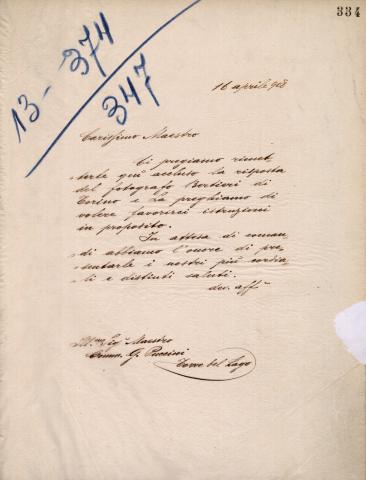 334
13 - 374
347
16 aprile 918
Carissimo Maestro
Ci pregiamo rimet-
terle qui accluso la risposta
del fotografo Bertieri di
Torino e La preghiamo di
volere favorirci istruzioni
in proposito.
In attesa di coman-
di abbiamo l'onore di pre-
sentarle i nostri più cordia-
li e distinti saluti.
dev. aff.
Ill.mo Sig. Maestro
Comm. G. Puccini
Torre del Lago